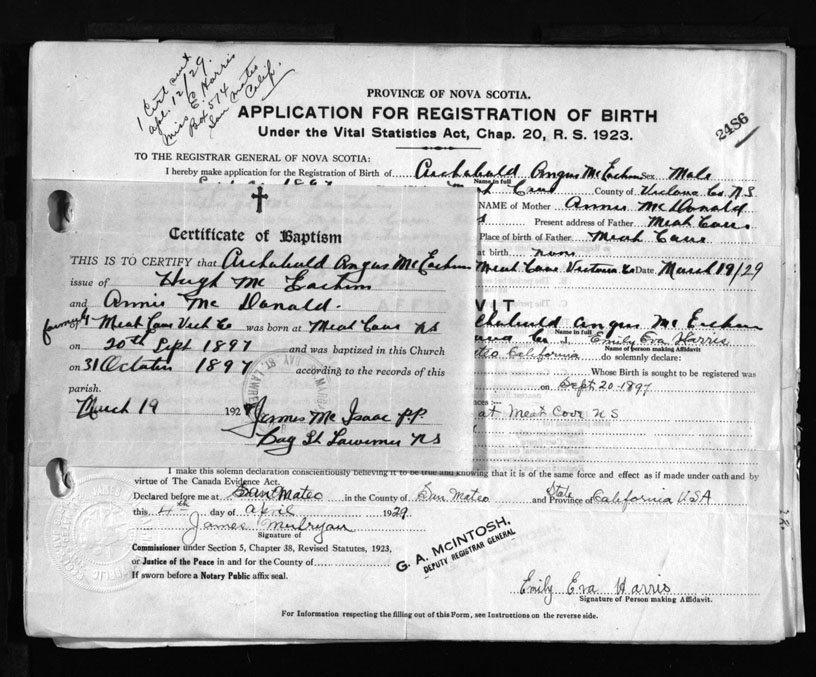 1 Cert sent
Apl. 12/29.
Miss E. Harris
Box 514
San Mateo
Calif.
PROVINCE OF NOVA SCOTIA.
APPLICATION FOR REGISTRATION OF BIRTH
Under the Vital Statistics Act, Chap. 20, R. S. 1923.
2486
TO THE REGISTRAR GENERAL OF NOVA SCOTIA:
I hereby make application for the Registration of Birth of Archabald Angus McEachern Sex Male
Name in full
Cove County of Victoria Co. N S
NAME of Mother Annie McDonald
Present address of Father Meat Cove
Place of birth of Father Meat Cove
at birth
Meat Cove Victoria Co Date March 19/29
VIT
chabald Angus McEachern
Name in full
I, Emily Eva Harris
Name of person making Affidavit
California do solemnly declare:
Whose Birth is sought to be registered was
on Sept 20 1897
at Meat Cove N S
Certificate of Baptism
THIS IS TO CERTIFY that Archabald Angus McEachern
issue of Hugh McEachern
and Annie McDonald.
formerly of Meat Cove Vict Co was born at Meat Cove NS
on 20th Sept 1897 and was baptized in this Church
on 31 October 1897 according to the records of this
parish.
March 19 1929
James McIsaac PP
Bay St Lawrence NS
I make this solemn declaration conscientiously believing it to be true and knowing that it is of the same force and effect as if made under oath and by
virtue of The Canada Evidence Act.
Declared before me at San Mateo in the County of San Mateo and Province of State California USA
this 4th day of April 1929
James Mulryan
Signature of
Commissioner under Section 5, Chapter 38, Revised Statutes, 1923,
or Justice of the Peace in and for the County of
If sworn before a Notary Public affix seal.
G. A. McINTOSH,
DEPUTY REGISTRAR GENERAL
Emily Eva Harris
Signature of Person making Affidavit.
For Information respecting the filling out of this Form, see Instructions on the reverse side.